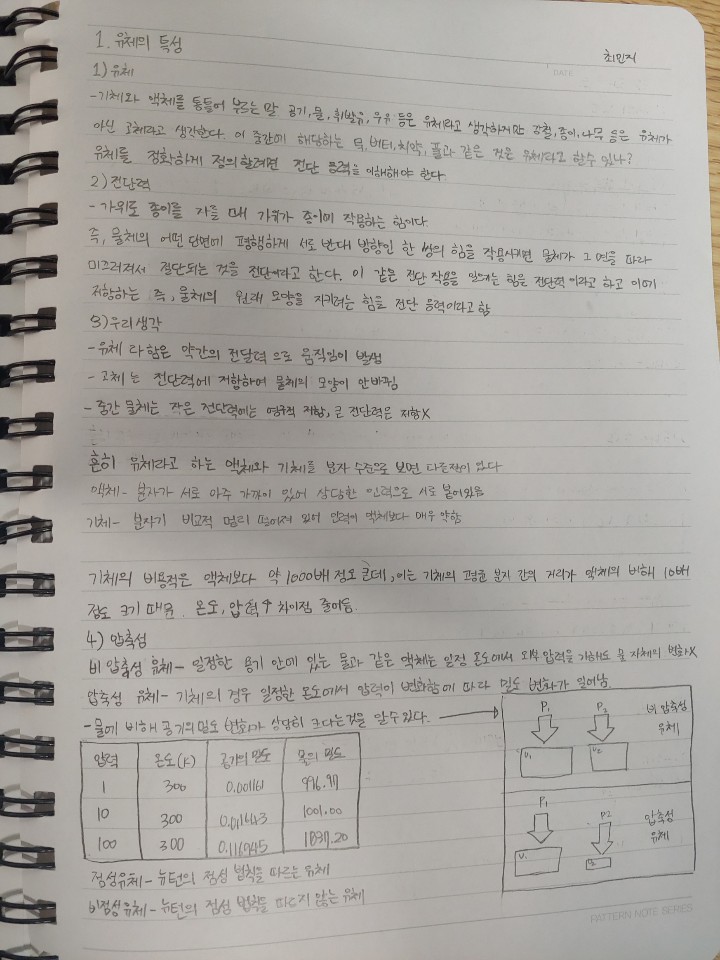 1. 유체의 특성
최민지
DATE
1) 유체
-기체와 액체를 통틀어 부르는 말 공기, 물, 휘발유, 우유 등은 유체라고 생각하지만 강철, 종이, 나무 등은 유체가
아닌 고체라고 생각한다. 이 중간에 해당하는 떡, 버터, 치약, 풀과 같은 것은 유체라고 할수 있나?
유체를 정확하게 정의할려면 전단 응력을 이해해야 한다.
2) 전단력
- 가위로 종이를 자를 때 가위가 종이에 작용하는 힘이다.
즉, 물체의 어떤 단면에 평행하게 서로 반대 방향인 한 쌍의 힘을 작용시키면 물체가 그 면을 따라
미끄러져서 절단되는 것을 전단이라고 한다. 이 같은 전단 작용을 일으키는 힘을 전단력 이라고 하고 이에
저항하는 즉, 물체의 원래 모양을 지키려는 힘을 전단 응력이라고 함
3) 우리생각
-유체 라 함은 약간의 전달력 으로 움직임이 발생
- 고체는 전단력에 저항하여 물체의 모양이 안바뀜
- 중간 물체는 작은 전단력에는 영구적 저항, 큰 전단력은 저항X
흔히 유체라고 하는 액체와 기체를 분자 수준으로 보면 다른점이 있다
액체- 분자가 서로 아주 가까이 있어 상당한 인력으로 서로 붙어있음
기체- 분자가 비교적 멀리 떨어져 있어 인력이 액체보다 매우 약함
기체의 비용적은 액체보다 약 1000배 정도 큰데, 이는 기체의 평균 분자 간의 거리가 액체의 비해 10배
정도 크기 때문. 온도, 압력↑ 차이점 줄어듬.
4) 압축성
비 압축성 유체- 일정한 용기 안에 있는 물과 같은 액체는 일정 온도에서 외부 압력을 가해도 물 자체의 변화X
압축성 유체- 기체의 경우 일정한 온도에서 압력이 변화함에 따라 밀도 변화가 일어남
-물에 비해 공기의 밀도 변화가 상당히 크다는것을 알수있다.
압력 온도(K) 공기의 밀도 물의 밀도
1 300 0.00161 996.97
10 300 0.011443 1001.00
100 300 0.116945 1037.20
P₁ P₂ 비 압축성
유체
V₁ V₂
P₁ P2 압축성
유체
V₁
점성유체- 뉴턴의 점성 법칙을 따르는 유체
비점성유체- 뉴턴의 점성 법칙을 따르지 않는 유체
PATTERN NOTE SERIES